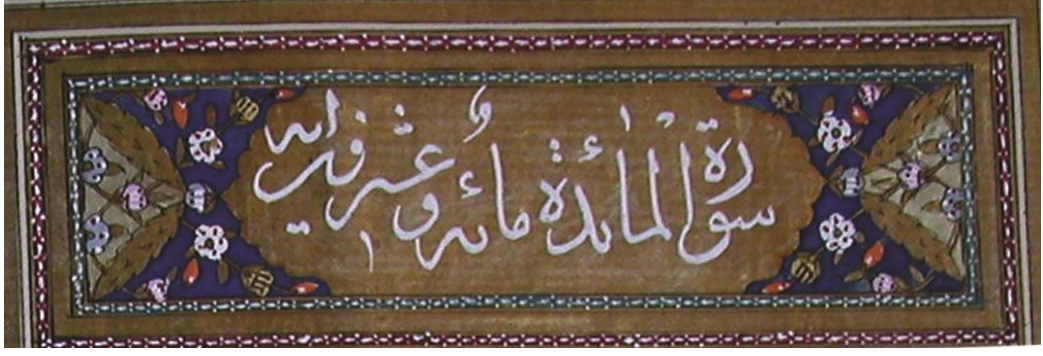 سورة المائدة مائه وعشرون ایه